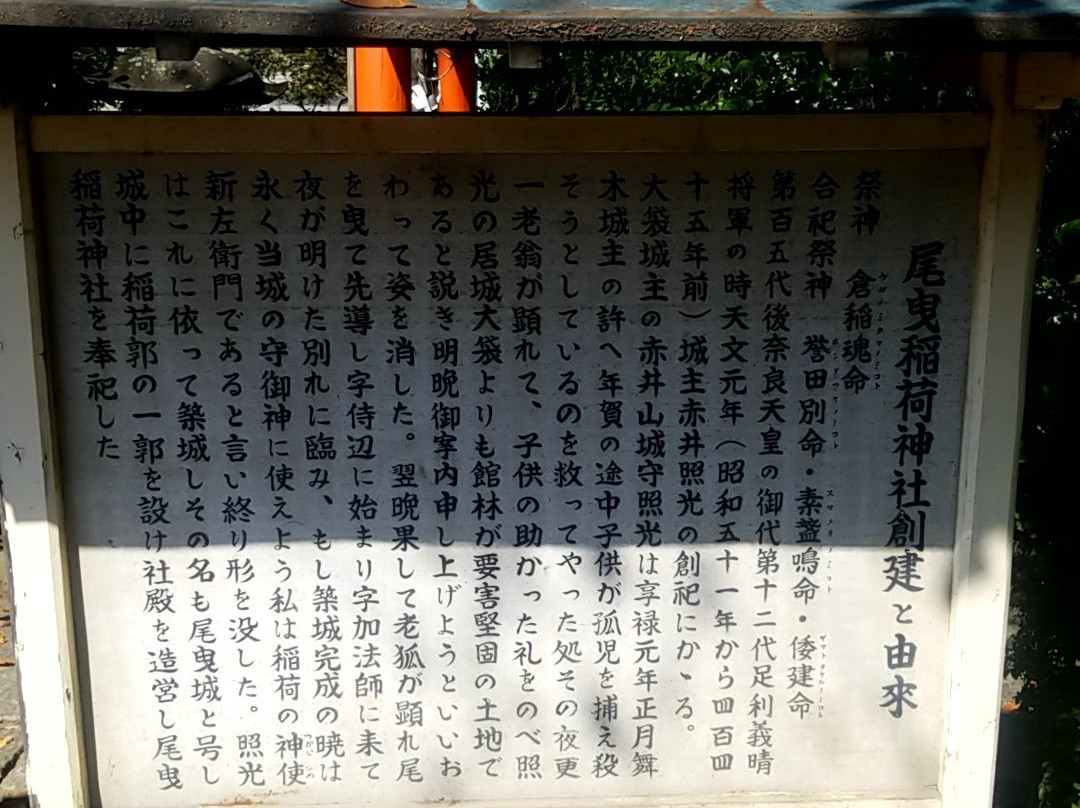 尾曳稲荷神社創建と由來
祭神　倉稲魂命
合祀祭神　誉田別命・素盞鳴命・倭建命
第百五代後奈良天皇の御代第十二代足利義晴
将軍の時天文元年（昭和五十一年から四百四
十五年前）城主赤井照光の創祀にかゝる。
大袋城主の赤井山城守照光は享禄元年正月舞
木城主の許へ年賀の途中子供が孤児を捕え殺
そうとしているのを救ってやった処その夜更
一老翁が顕れて、子供の助かった礼をのべ照
光の居城大袋よりも館林が要害堅固の土地で
あると説き明晩御案内申し上げようといいお
わって姿を消した。翌晩果して老狐が顕れ尾
を曳て先導し字侍辺に始まり字加法師に来て
夜が明けた別れに臨み、もし築城完成の暁は
永く当城の守御神に使えよう私は稲荷の神使
新左衛門であると言い終り形を没した。照光
はこれに依って築城しその名も尾曳城と号し
城中に稲荷郭の一郭を設け社殿を造営し尾曳
稲荷神社を奉祀した